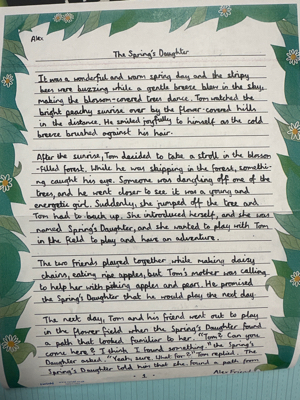 Alex
The Spring's Daughter
It was a wonderful and warm spring day, and the stripy
bees were buzzing while a gentle breeze blew in the sky,
making the blossom-covered trees dance. Tom watched the
bright peachy sunrise over by the flower-covered hills
in the distance. He smiled joyfully to himself as the cold
breeze brushed against his hair.
After the sunrise, Tom decided to take a stroll in the blossom
-filled forest. While he was skipping in the forest, somethi-
ng caught his eye. Someone was dangling off one of the
trees, and he went closer to see it was a young and
energetic girl. Suddenly, she jumped off the tree and
Tom had to back up. She introduced herself, and she was
named Spring's Daughter, and she wanted to play with Tom
in the field to play and have an adventure.
The two friends played together while making daisy
chains, eating ripe apples, but Tom's mother was calling
to help her with picking apples and pears. He promised
the Spring's Daughter that he would play the next day.
The next day, Tom and his friend went out to play
in the flower field when the Spring's Daughter found
a path that looked familiar to her. "Tom? Can you
come here? I think I found something." the Spring's
Daughter asked. "Yeah, sure. What for?" Tom replied. The
Spring's Daughter told him that she found a path from
1
Alex